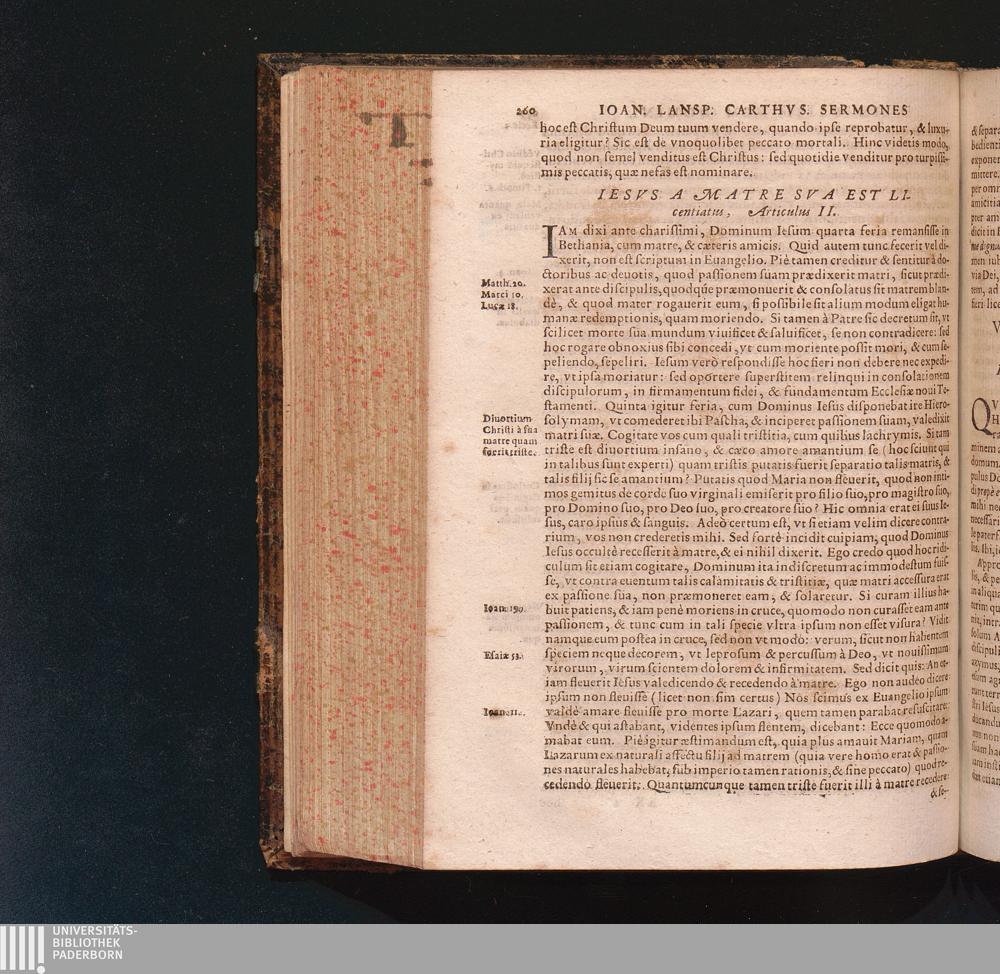 260 IOAN. LANSP. CARTHVS. SERMONES
hoc est Christum Deum tuum vendere, quando ipse reprobatur, & luxu-
ria eligitur? Sic est de vnoquolibet peccato mortali. Hinc videtis modo,
quod non semel venditus est Christus: sed quotidie venditur pro turpissi-
mis peccatis, quæ nefas est nominare.
IESVS A MATRE SVA EST LI-
centiatus, Articulus II.
IAM dixi ante charissimi, Dominum Iesum quarta feria remansisse in
Bethania, cum matre, & cæteris amicis. Quid autem tunc fecerit vel di-
xerit, non est scriptum in Euangelio. Piè tamen creditur & sentitur à do-
ctoribus ac deuotis, quod passionem suam prædixerit matri, sicut prædi-
xerat ante discipulis, quodque præmonuerit & consolatus sit matrem blan-
dè, & quod mater rogauerit eum, si possibile sit alium modum eligat hu-
manæ redemptionis, quam moriendo. Si tamen à Patre sic decretum sit, vt
scilicet morte sua mundum viuificet & saluificet, se non contradicere: sed
hoc rogare obnoxius sibi concedi, vt cum moriente possit mori, & cum se-
peliendo, sepeliri. Iesum verò respondisse hoc fieri non debere nec expedi-
re, vt ipsa moriatur: sed oportere superstitem relinqui in consolationem
discipulorum, in firmamentum fidei, & fundamentum Ecclesiæ noui Te-
stamenti. Quinta igitur feria, cum Dominus Iesus disponebat ire Hiero-
solymam, vt comederet ibi Pascha, & inciperet passionem suam, valedixit
matri suæ. Cogitate vos cum quali tristitia, cum quilius lachrymis. Si tam
triste est diuortium insano, & cæco amore amantium se (hoc sciunt qui
in talibus sunt experti) quam tristis putatis fuerit separatio talis matris, &
talis filij sic se amantium? Putatis quod Maria non fleuerit, quod non inti-
mos gemitus de corde suo virginali emiserit pro filio suo, pro magistro suo,
pro Domino suo, pro Deo suo, pro creatore suo? Hic omnia erat ei suus Ie-
sus, caro ipsius & sanguis. Adeò certum est, vt si etiam velim dicere contra-
rium, vos non crederetis mihi. Sed fortè incidit cuipiam, quod Dominus
Iesus occultè recesserit à matre, & ei nihil dixerit. Ego credo quod hoc ridi-
culum sit etiam cogitare, Dominum ita indiscretum ac immodestum fuis-
se, vt contra euentum talis calamitatis & tristitiæ, quæ matri accessura erat
ex passione sua, non præmoneret eam, & solaretur. Si curam illius ha-
buit patiens, & iam penè moriens in cruce, quomodo non curasset eam ante
passionem, & tunc cum in tali specie vltra ipsum non esset visura? Vidit
namque eum postea in cruce, sed non vt modò: verum, sicut non habentem
speciem neque decorem, vt leprosum & percussum à Deo, vt nouissimum
virorum, virum scientem dolorem & infirmitatem. Sed dicit quis: An et-
iam fleuerit Iesus valedicendo & recedendo à matre. Ego non audeo dicere
ipsum non fleuisse (licet non sim certus) Nos scimus ex Euangelio ipsum
valdè amare fleuisse pro morte Lazari, quem tamen parabat resuscitare:
Vndè & qui astabant, videntes ipsum flentem, dicebant: Ecce quomodo a-
mabat eum. Piè igitur æstimandum est, quia plus amauit Mariam, quam
Lazarum ex naturali affectu filij ad matrem (quia vere homo erat & passio-
nes naturales habebat, sub imperio tamen rationis, & sine peccato) quod re-
cedendo fleuerit. Quantumcunque tamen triste fuerit illi à matre recedere:
& se-
Matth. 20.
Marci 10.
Lucæ 18.
Diuortium
Christi à sua
matre quam
fuerit triste.
Ioan. 19.
Esaiæ 53.
Ioan. 11.
UNIVERSITÄTS-
BIBLIOTHEK
PADERBORN